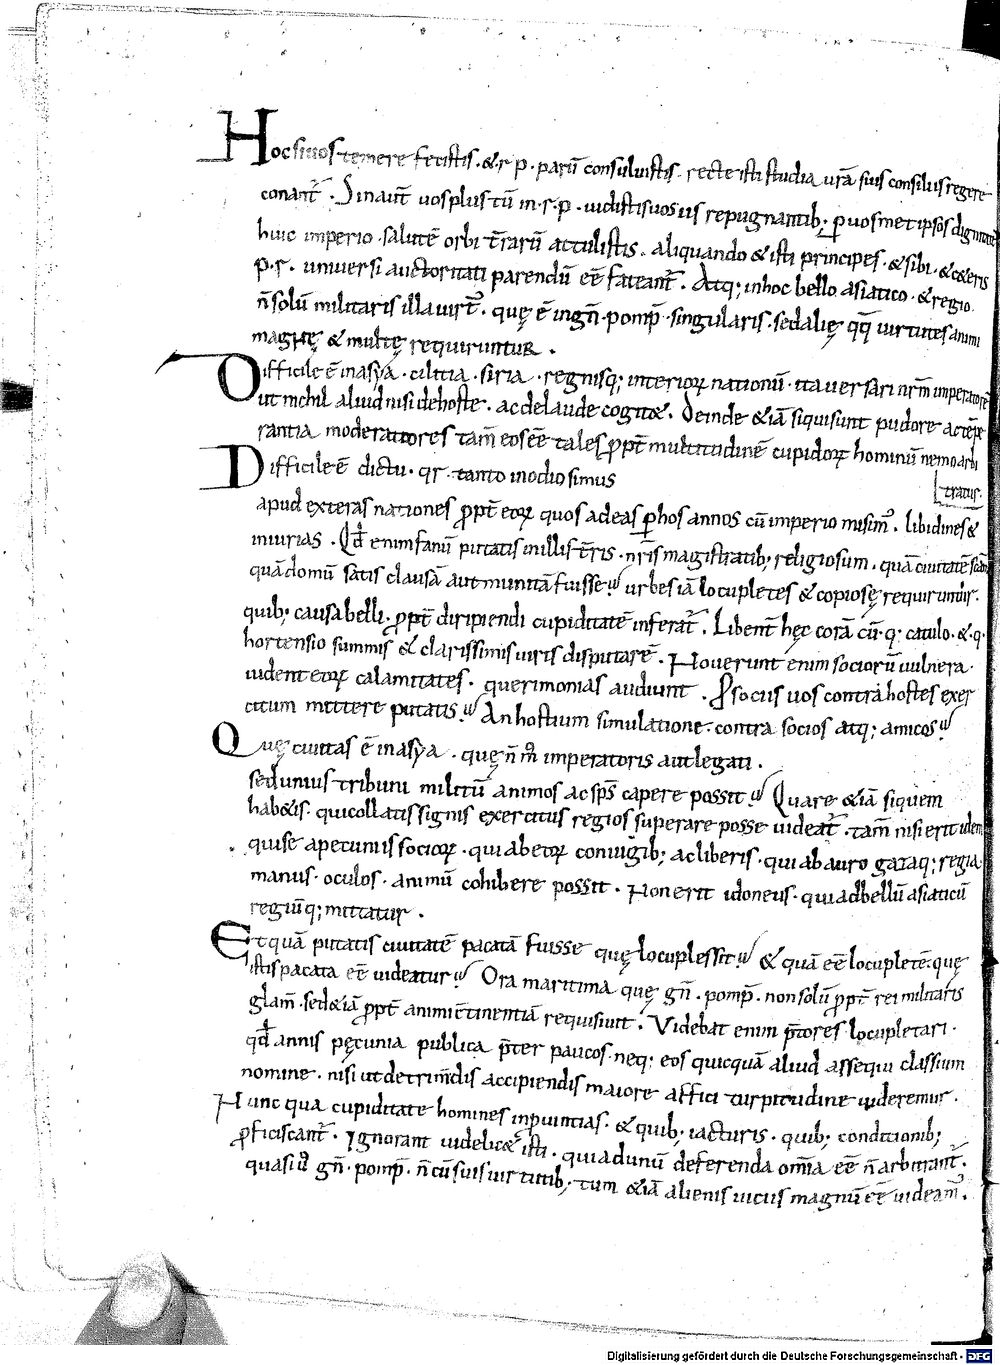 Hoc si vos temere fecistis · & r p · parū consuluistis · recte isti studia vrā suis consiliis regere
conant̄ · Sin aut̄ vos plus tū in · r · p · vidistis vos iis repugnantib; p vosmet ipsos dignitatē
huic imperio · salutē orbi t̄rarū attulistis · aliquando & isti principes · & sibi · & cæteris
p · r · universi auctoritati parendū eē fateant̄ · Atq; in hoc bello asiatico · & regio
n̄ solū militaris illa virt; · quę ē in gn̄ · pomp̄ · singularis · sed alię qq̄ virtutes animi
magnę & multę requiruntur ·
Difficile ē in asya · cilitia · siria · regnisq; interioꝝ nationū · ita versari nr̄m imperatorē
ut nichil aliud nisi de hoste · ac de laude cogit& · Deinde &iā si qui sunt pudore ac tēpe
rantia moderatiores tam̄ eos eē tales ppt̄ multitudinē cupidoꝝ hominū nemo arbi
tratur ·
Difficile ē dictu · qr · tanto in odio simus
apud exteras nationes ppt̄ eoꝝ quos ad eas p hos annos cū imperio misim; · libidines &
iniurias · Qd̄ enim fanū putatis in illis t̄ris · nr̄is magistratib; religiosum · quā civitatē scām
quā domū satis clausā aut munitā fuisse urbes iā locupletes & copiosę requirunt̄ur ·
quib; causa belli · ppt̄ diripiendi cupiditatē inferat̄ · Libent̄ hęc corā cū · q; catulo · & · q ·
hortensio summis & clarissimis viris disputarē · Noverunt enim sociorū vulnera ·
vident eoꝝ calamitates · querimonias audiunt · P sociis vos contra hostes exer
citum mittere putatis An hostium simulatione · contra socios atq; amicos
Quę civitas ē in asya · quę n̄ m̄ imperatoris aut legati ·
sed unius tribuni militū animos ac sp̄s capere possit Quare &iā si quem
hab&is · qui collatis signis exercitus regios superare posse videat̄ · tam̄ nisi erit idem
qui se a pecuniis socioꝝ · qui ab eoꝝ coniugib; ac liberis · qui ab auro gazaq; regia
manus · oculos · animū cohibere possit · Non erit idoneus · qui ad bellū asiaticū
regiūq; mittatur ·
Et quā putatis civitatē pacatā fuisse quę locuples sit & quā eē locupletē · quę
istis pacata eē videatur Ora maritima quę gn̄ · pomp̄ · non solū ppt̄ rei militaris
glam̄ · sed &iā ppt̄ animi c̄tinentiā requisivit · Videbat enim p̄tores locupletari ·
qd̄ annis pęcunia publica p̄ter paucos · neq; eos quicquā aliud assequi classium
nomine · nisi ut detrim̄tis accipiendis maiore affici turpitudine videremur ·
Nunc qua cupiditate homines in pvintias · & quib; iacturis · quib; conditionib;
pficiscant̄ · Ignorant videlic& isti · qui ad unū deferenda om̄ia eē n̄ arbitrant̄ ·
quasi v̄ gn̄ · pomp̄ · n̄ cū suis virtutib; tum &iā alienis viciis magnū eē videam; ·
Digitalisierung gefördert durch die Deutsche Forschungsgemeinschaft · DFG